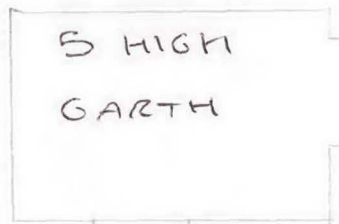 5 HIGH
GARTH